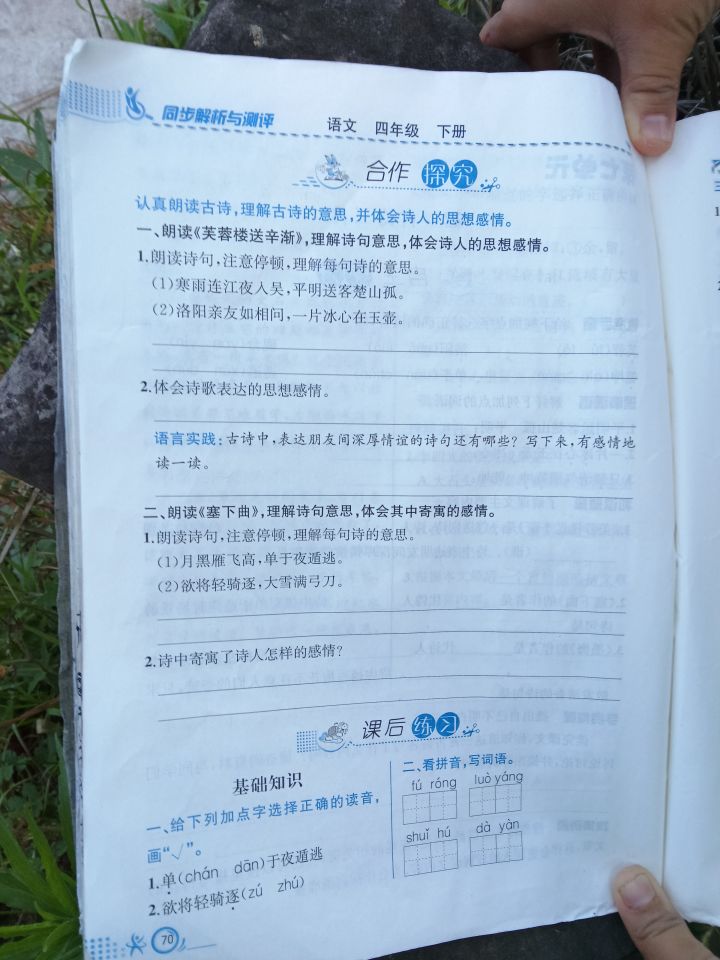 同步解析与测评
语文 四年级 下册
合作 探究
认真朗读古诗,理解古诗的意思,并体会诗人的思想感情。
一、朗读《芙蓉楼送辛渐》,理解诗句意思,体会诗人的思想感情。
1.朗读诗句,注意停顿,理解每句诗的意思。
(1)寒雨连江夜入吴,平明送客楚山孤。
(2)洛阳亲友如相问,一片冰心在玉壶。
2.体会诗歌表达的思想感情。
语言实践:古诗中,表达朋友间深厚情谊的诗句还有哪些?写下来,有感情地
读一读。
二、朗读《塞下曲》,理解诗句意思,体会其中寄寓的感情。
1.朗读诗句,注意停顿,理解每句诗的意思。
(1)月黑雁飞高,单于夜遁逃。
(2)欲将轻骑逐,大雪满弓刀。
2.诗中寄寓了诗人怎样的感情?
课后 练习
基础知识
一、给下列加点字选择正确的读音,
画“√”。
1.单(chán dān)于夜遁逃
2.欲将轻骑逐(zú zhú)
二、看拼音,写词语。
fú róng luò yáng
shuǐ hú dà yàn
70